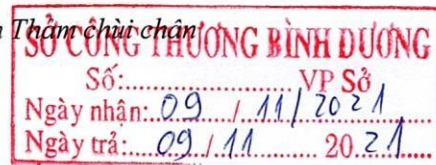 Thảm chùi chân
SỞ CÔNG THƯƠNG BÌNH DƯƠNG
Số:................. VP Sở
Ngày nhận: 09 / 11 / 2021
Ngày trả: 09 / 11 20 21